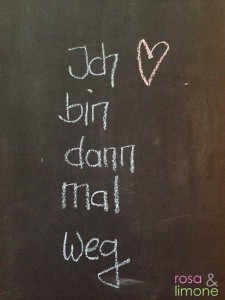 Ich
bin
dann
mal
weg
rosa &
limone